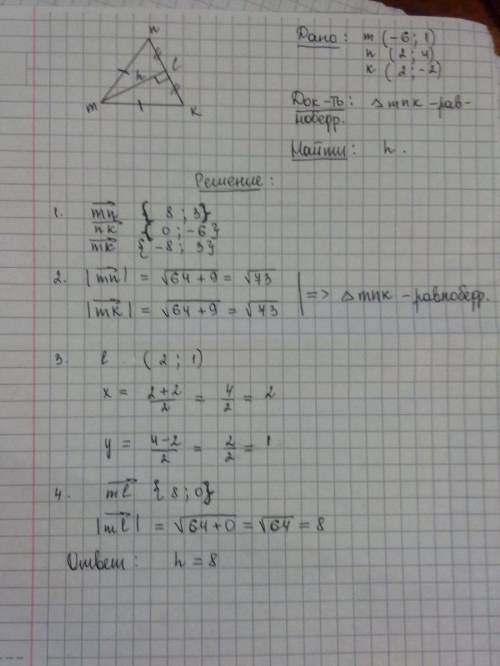 n
l
h
m
k
Дано: m (-6; 1)
n (2; 4)
k (2; -2)
Док-ть: △mnk -рав-
нобедр.
Найти: h.
Решение:
1. mn {8; 3}
nk {0; -6}
mk {-8; 3}
2. |mn| = √64+9 = √73
|mk| = √64+9 = √73
=> △mnk - равнобедр.
3. l (2; 1)
x = (2+2)/2 = 4/2 = 2
y = (4-2)/2 = 2/2 = 1
4. ml {8; 0}
|ml| = √64+0 = √64 = 8
Ответ: h = 8